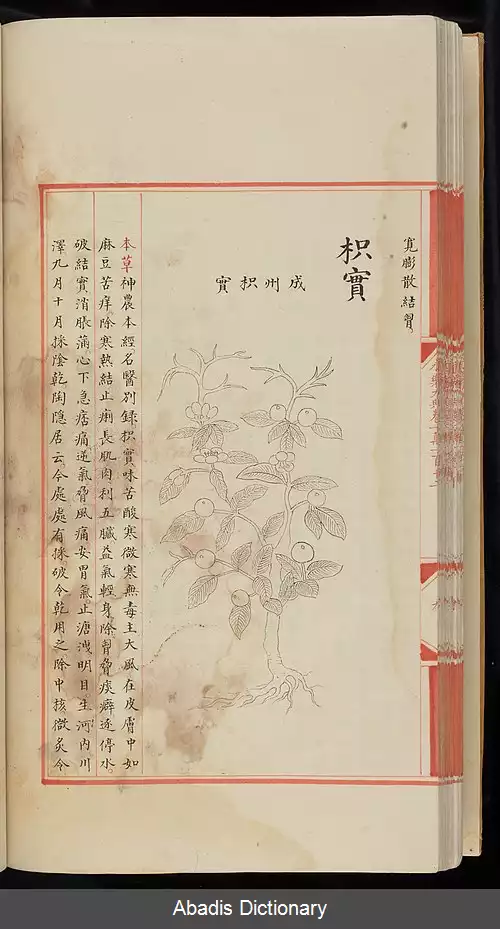 寬膨散結胷
枳實
成州枳實
本草神農本經名醫別録枳實味苦酸寒微寒無毒主大風在皮膚中如
麻豆苦痒除寒熱結止痢長肌肉利五臟益氣輕身除胷脅痰癖逐停水
破結實消脹滿心下急痞痛逆氣脅風痛安胃氣止溏洩明目生河内川
澤九月十月採陰乾陶隐居云今處處有採破令乾用之除中核微炙令
Abadis Dictionary